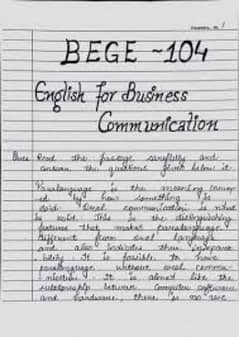 BEGE ~104
English for Business
Communication
Ques Read the passage carefully and
answer the questions given below it.
Paralanguage is the meaning convey
ed by how something is
said. Oral communication is what
is said. This is the distinguishing
feature that makes paralanguage
different from oral language
and also indicates their insepara
bility. It is possible to have
paralanguage without oral commu
nication. It is almost like the
relationship between computer software
and hardware, there is no use